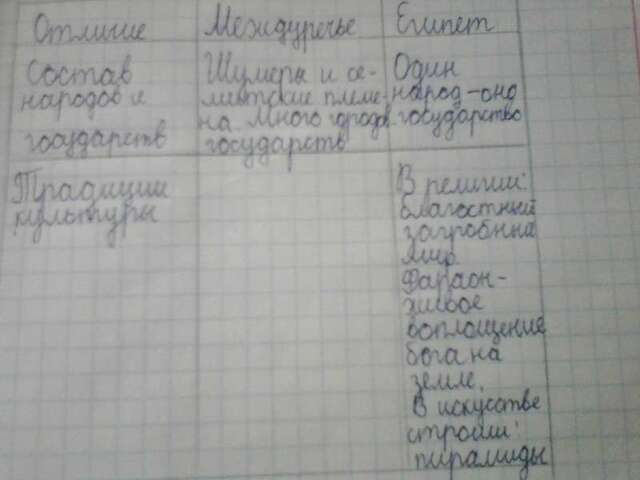 Отличие Междуречье Египет
Состав
народов и
государств
Шумеры и се-
митские племе-
на. Много городов-
государств
Один
народ-одно
государство
Традиции
культуры
В религии:
благостный
загробный
мир.
Фараон-
живое
воплощение
бога на
земле.
В искусстве
строили:
пирамиды